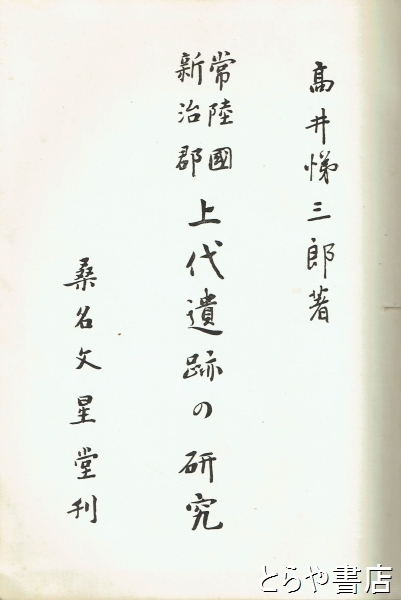 髙井悌三郎著
常陸國
新治郡
上代遺跡の研究
桑名文星堂刊
とらや書店